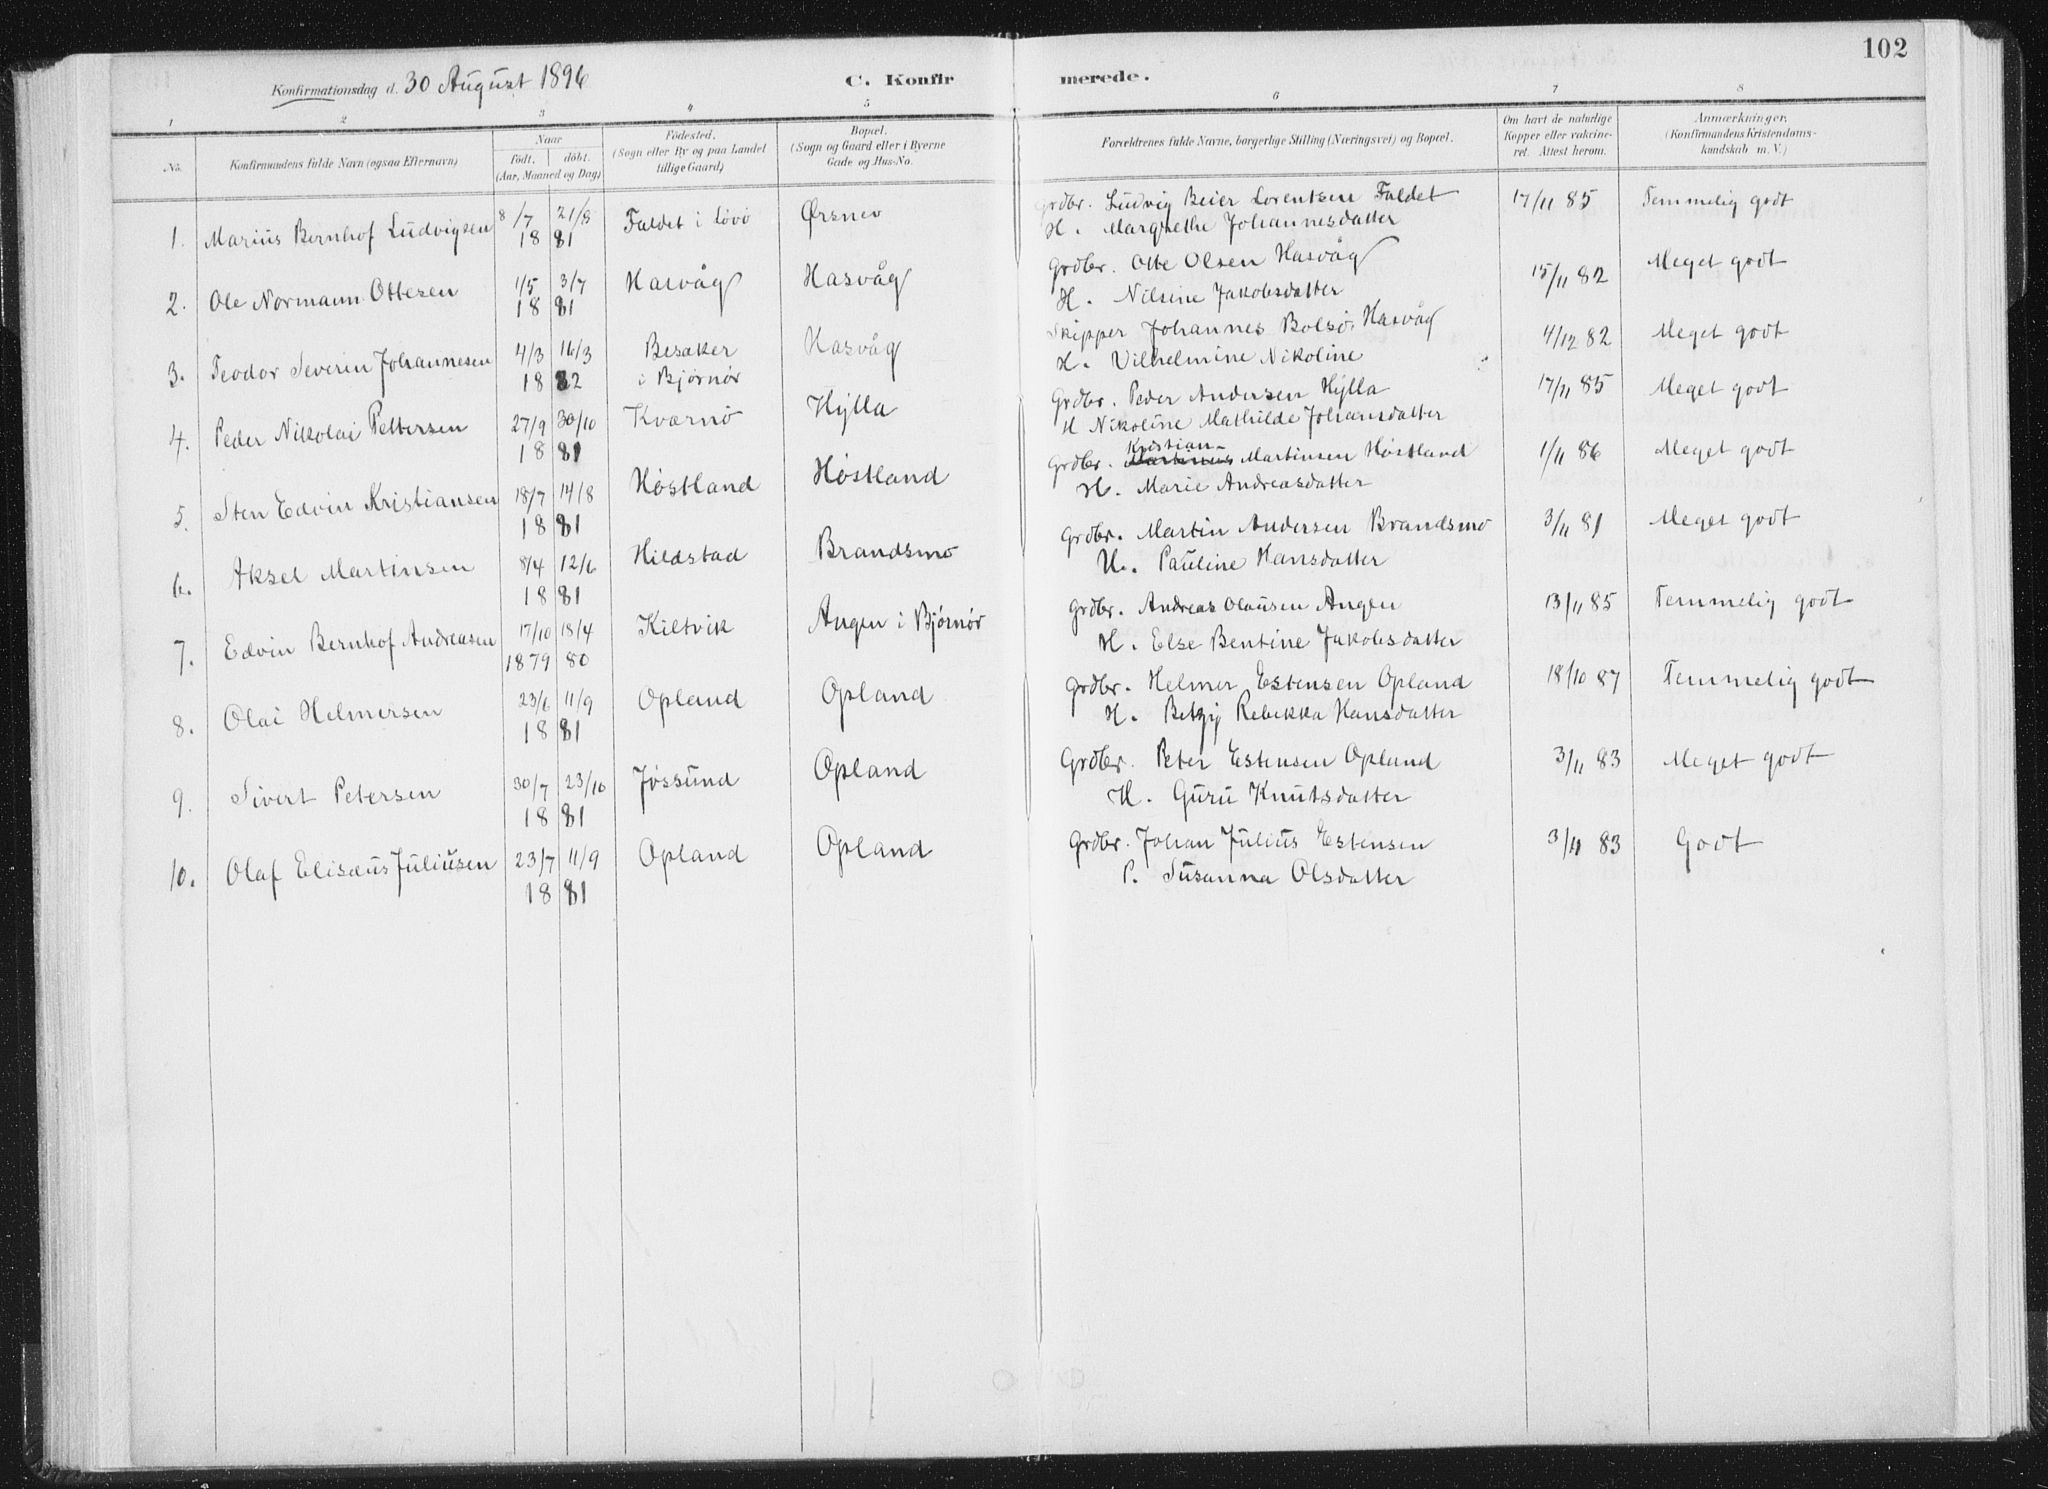 102
Konfirmationsdag d. 30 August 1896
C. Konfirmerede.
1 2 3 4 5 6 7 8
No.
Konfirmandens fulde Navn (ogsaa Efternavn)
Naar
Födt. döbt.
(Aar, Maaned og Dag)
Födested.
(Sogn eller By og paa Landet
tillige Gaard)
Bopæl.
(Sogn og Gaard eller i Byerne
Gade og Hus-No.
Forældrenes fulde Navne, borgerlige Stilling (Næringsvei) og Bopæl.
Om havt de naturlige
Kopper eller vakcine-
ret. Attest herom.
Anmærkninger.
(Konfirmandens Kristendoms-
kundskab m. V.)
1. Marius Bernhof Ludvigsen 8/7 21/8 1881 Faldet i Lövö Ørsnev Grdbr. Ludvig Beier Lorentsen Faldet 17/11 85 Temmelig godt
H. Margrethe Johannesdatter
2. Ole Normann Ottesen 1/5 3/7 1881 Hasvåg Hasvåg Grdbr. Otte Olsen Hasvåg 15/11 82 Meget godt
H. Nilsine Jakobsdatter
3. Teodor Severin Johannesen 4/3 16/3 1882 Besaker i Bjørnør Hasvåg Skipper Johannes Bolsö, Hasvåg 4/12 82 Meget godt
H. Vilhelmine Nikoline
4. Peder Nikolai Pettersen 27/9 30/10 1881 Kværnö Hylla Grdbr. Peder Andersen Hylla 17/11 85 Meget godt
H Nikoline Mathilde Johansdatter
5. Sten Edvin Kristiansen 18/7 14/8 1881 Höstland Höstland Grdbr. Kristian Martinsen Höstland 1/11 86 Meget godt
H. Marie Andreasdatter
6. Aksel Martinsen 8/4 12/6 1881 Hildstad Brandsmo Grdbr. Martin Andersen Brandsmo 3/11 81 Meget godt
H. Pauline Hansdatter
7. Edvin Bernhof Andreasen 17/10 1879 18/4 80 Kiltvik Angen i Bjørnør Grdbr. Andreas Olausen Angen 13/11 85 Temmelig godt
H. Else Bentine Jakobsdatter
8. Olai Helmersen 23/6 11/9 1881 Opland Opland Grdbr. Helmer Estensen Opland 18/10 87 Temmelig godt
H. Betzy Rebekka Hansdatter
9. Sivert Petersen 30/7 23/10 1881 Jössund Opland Grdbr. Peter Estensen Opland 3/11 83 Meget godt
H. Guru Knutsdatter
10. Olaf Elisæus Juliusen 23/7 11/9 1881 Opland Opland Grdbr. Johan Julius Estensen 3/11 83 Godt
P. Susanna Olsdatter